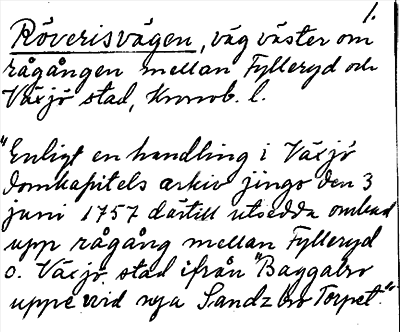 1.
Röverisvägen, väg väster om
rågången mellan Fylleryd och
Växjö stad, Kronob. l.
"Enligt en handling i Växjö
domkapitels arkiv jingo den 3
juni 1757 därtill utsedda ombud
upp rågång mellan Fylleryd
o. Växjö stad ifrån "Baggabro
uppe vid nya Sandzbro Torpet."